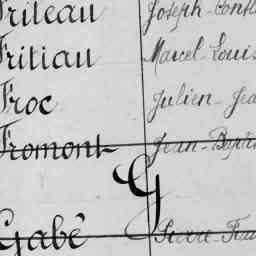 Friteau Joseph-Const
Fritiau Marcel-Louis
Froc Julien-Jea
Fromont Jean-Bapti
G
Gabé Pierre-Fra